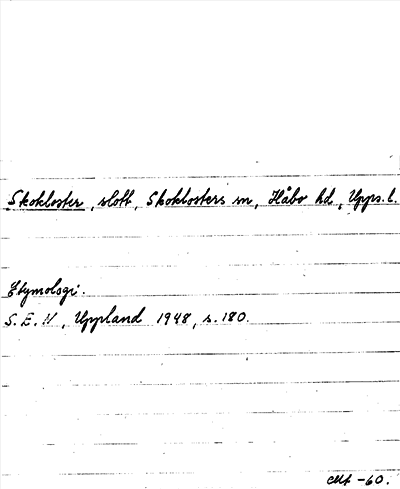 Skokloster, slott, Skoklosters sn, Håbo hd, Upps. l.
Etymologi.
S. E. V., Uppland 1948, s. 180.
-60.